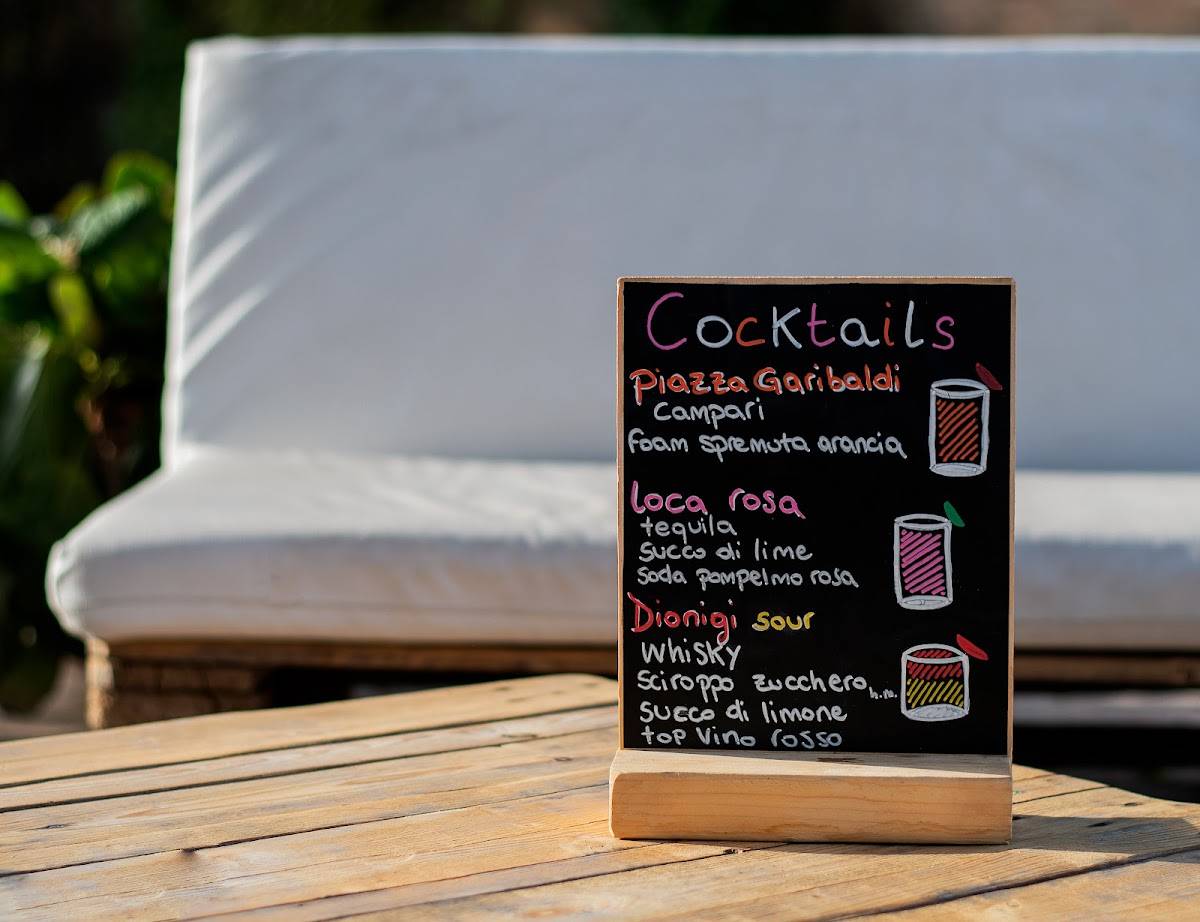 Cocktails
Piazza Garibaldi
Campari
foam spremuta arancia
loca rosa
tequila
succo di lime
soda pompelmo rosa
Dionigi sour
Whisky
sciroppo zucchero h.m.
succo di limone
top vino rosso